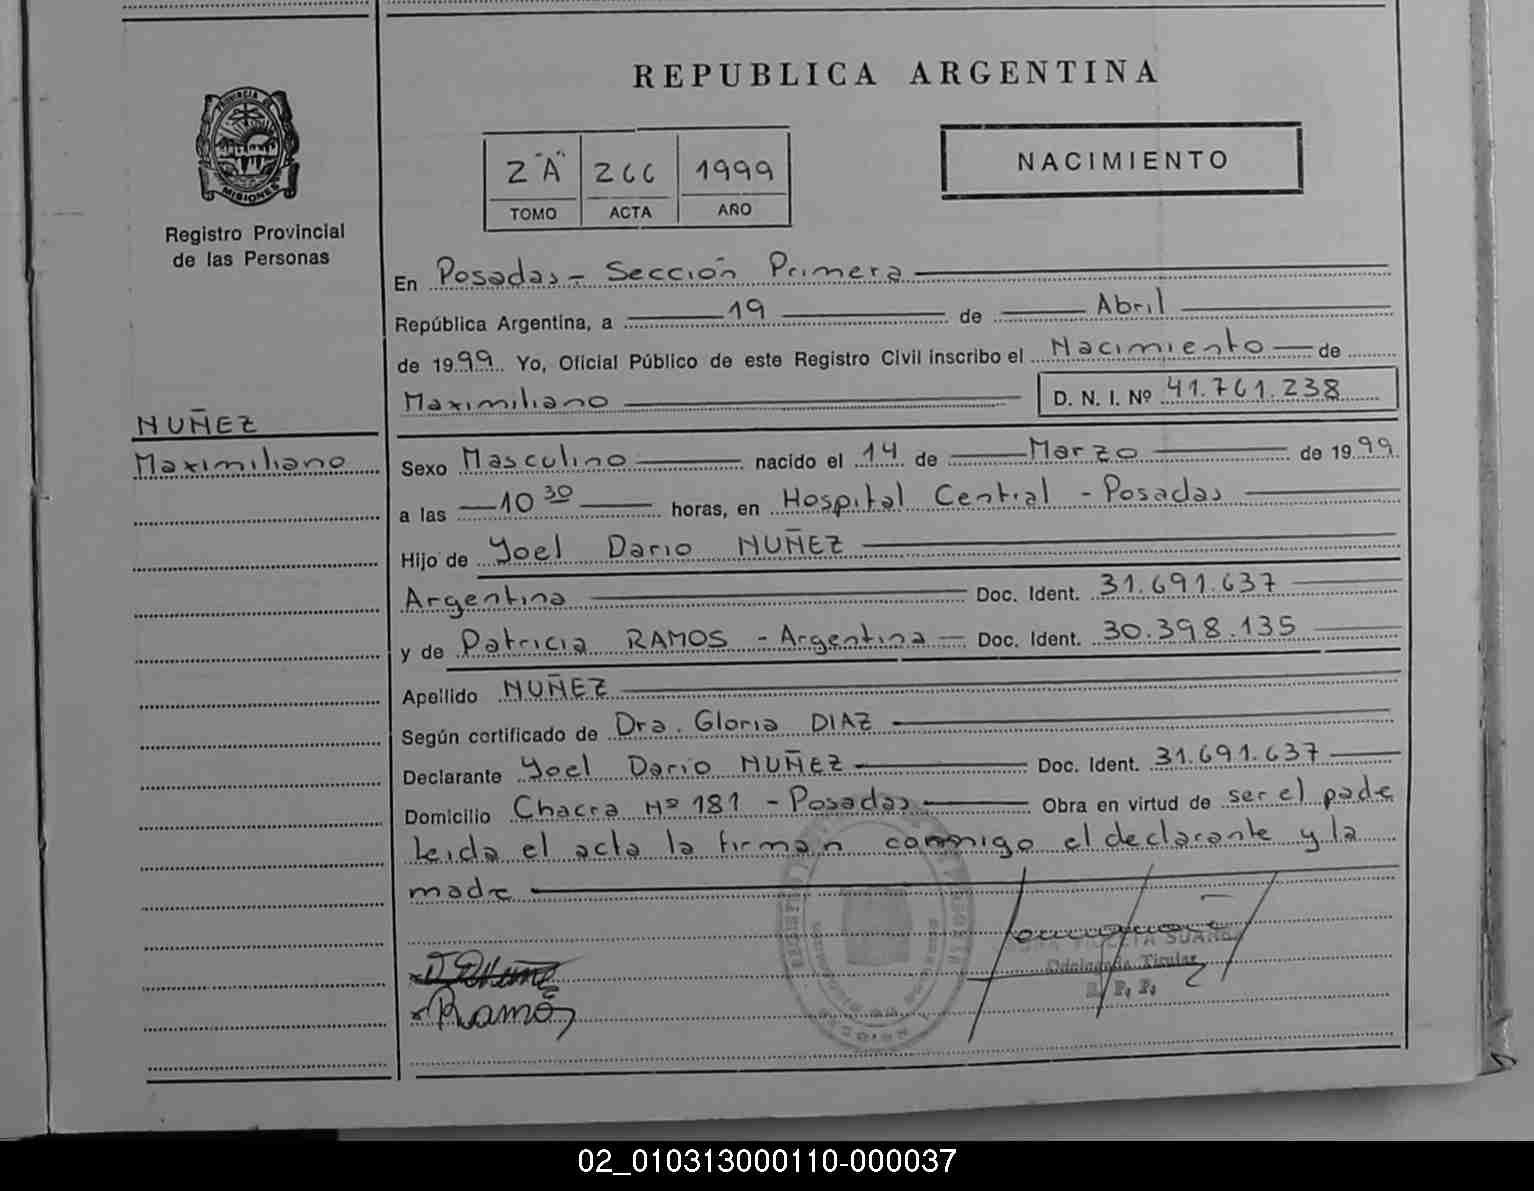 REPUBLICA ARGENTINA
PROVINCIA DE
MISIONES
Registro Provincial
de las Personas
2 "A" 266 1999
TOMO ACTA AÑO
NACIMIENTO
En Posadas - Sección Primera
República Argentina, a 19 de Abril
de 1999 Yo, Oficial Público de este Registro Civil inscribo el Nacimiento de
Maximiliano D. N. I. Nº 41.761.238
NUÑEZ
Maximiliano
Sexo Masculino nacido el 14 de Marzo de 1999.
a las 10 30 horas, en Hospital Central - Posadas
Hijo de Yoel Dario NUÑEZ
Argentina Doc. Ident. 31.691.637
y de Patricia RAMOS - Argentina Doc. Ident. 30.398.135
Apellido NUÑEZ
Según certificado de Dra. Gloria DIAZ
Declarante Yoel Dario NUÑEZ Doc. Ident. 31.691.637
Domicilio Chacra Nº 181 - Posadas Obra en virtud de ser el padre
Leida el acta la firman conmigo el declarante y la
madre
SUAREZ
Titular
R. P. P.
Ramos
02_010313000110-000037